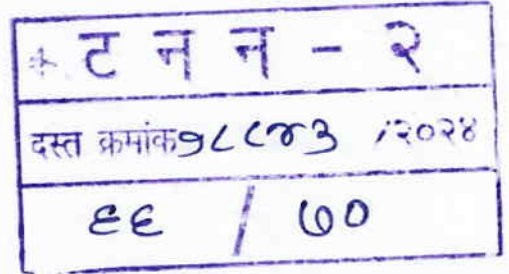 ट न न - २
दस्त क्रमांक १८८४३ /२०२४
६६ / ७०